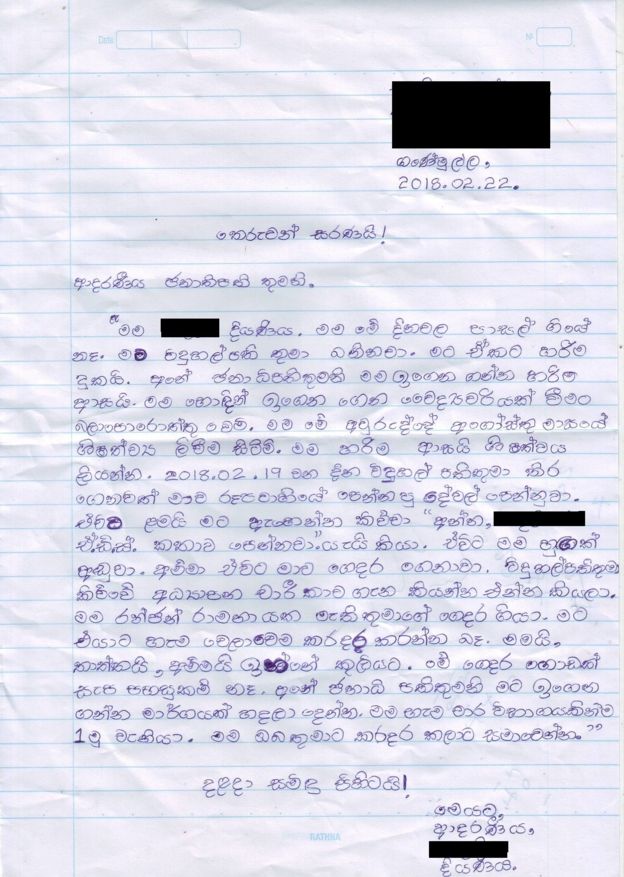 Date
No
ගණේමුල්ල,
2018.02.22.
තෙරුවන් සරණයි!
ආදරණීය ජනාතිපති තුමනි.
"මම දියණිය. මම මේ දිනවල පාසල් ගියේ
නෑ. මම විදුහල්පති තුමා බණිනවා. මට ඒකට හරිම
දුකයි. අනේ ජනාධිපතිතුමනි මම ඉගෙන ගන්න හරිම
ආසයි. මම හොදින් ඉගෙන ගෙන වෛද්‍යවරියක් වීමට
බලාපොරොත්තු වෙමි. මම මේ අවුරුද්දේ අගෝස්තු මාසයේ
ශිෂත්ව්‍ය ලිවීම සිටිමි. මම හරිම ආසයි ශිෂත්වය
ලියන්න. 2018.02.19 වන දින විදුහල් පතිතුමා
ගෙනවත් මාව රූපවාහියේ පෙන්නපු දේවල් පෙන්නුවා.
එවිට ළමයි මට ඇහෙන්න කිව්වා "අන්න,
ඒ.ඩ්.ස්. කතාව පෙන්නවා."යැයි කියා. එවිට මම හුඟක්
අඬුවා. අම්මා එවිට මාව ගෙදර ගෙනාවා. විදුහල්පතිතුමා
කිව්වේ අධ්‍යාපන චාරිකාව ගැන කියන්න එන්න කියලා.
මම රන්ජන් රාමනායක මැතිතුමාගේ ගෙදර ගියා. මට
එයාට හැම වෙලාවෙම කරදර කරන්න බෑ. මමයි,
තාත්තයි, අම්මයි ඉන්නේ කුලියට. මේ ගෙදර හොඩක්
සැප පහසුකම් නෑ. අනේ ජනාධි පතිතුමනි මට ඉගෙන
ගන්න මාර්ගයක් හදලා දෙන්න. මම හැම වාර විභාගයකින්ම
1වු වැනියා. මම ඔබතුමාට කරදර කලාට සමාවෙන්න."
දළදා සමිදු පිහිටයි!
මෙයට,
ආදරණීය,
දියණිය.
RATHNA